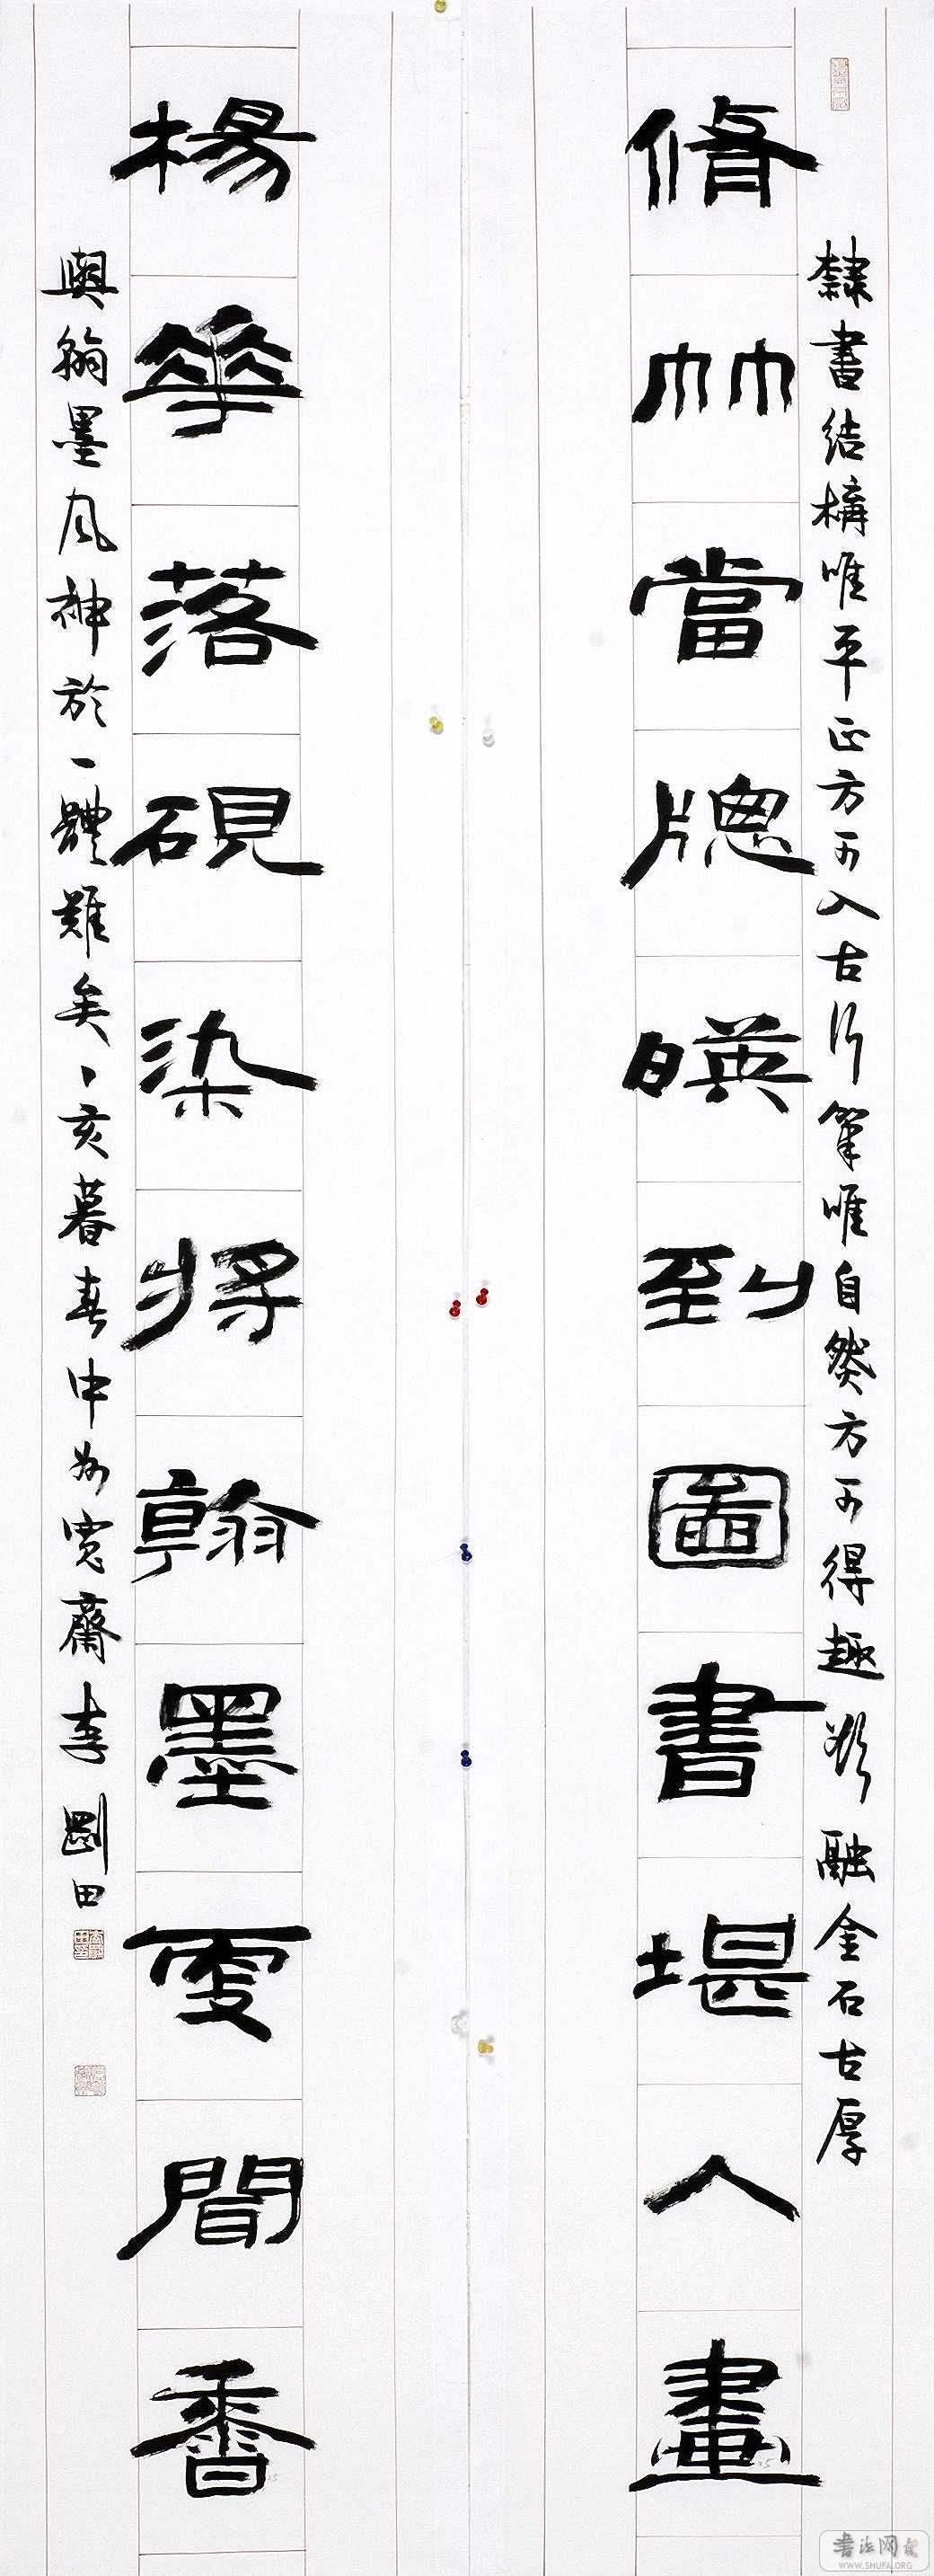 隸書結構唯平正方可入古行筆唯自然方可得趣欲融金石古厚
脩竹當牕暎到圖書堪入畫
楊華落硯染將翰墨更聞香
與翰墨風神於一體難矣丁亥暮春中州寬齋李剛田
書法网
WWW.SHUFA.ORG